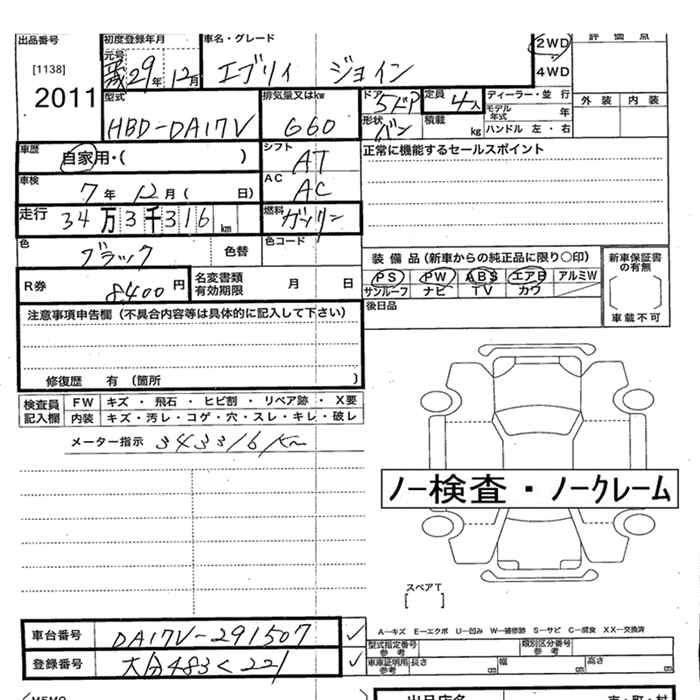 出品番号 初度登録年月 車名・グレード 2WD 評価点
[1138] 元号 平29年12月 エブリィ ジョイン 4WD
2011 型式 HBD-DA17V 排気量又はkw 660 ドア 5ドア 定員 4人 ディーラー・並行 外装 内装
形状 バン 積載 kg モデル年式 年
ハンドル 左・右
車歴 自家用・( ) シフト AT 正常に機能するセールスポイント
車検 7年12月( 日) AC AC
走行 34万3千316km 燃料 ガソリン
色 ブラック 色替 色コード
装備品(新車からの純正品に限り○印) 新車保証書の有無
R券 8,400円 名変書類有効期限 月 日 PS PW ABS エアB アルミW
サンルーフ ナビ TV カワ 車載不可
注意事項申告欄(不具合内容等は具体的に記入して下さい) 後日品
修復歴 有(箇所 )
検査員記入欄 FW キズ・飛石・ヒビ割・リペア跡・X要
内装 キズ・汚レ・コゲ・穴・スレ・キレ・破レ
メーター指示 343316km
ノー検査・ノークレーム
スペアT
[ ]
A―キズ E―エクボ U―凹み W―補修跡 S―サビ C―腐食 XX―交換済
車台番号 DA17V-291507 ✓ 型式指定番号 参考 類別区分番号 参考
登録番号 大分483く221 ✓ 車庫証明用 参考 長さ 幅 高さ
MEMO 出品店名 市・町・村